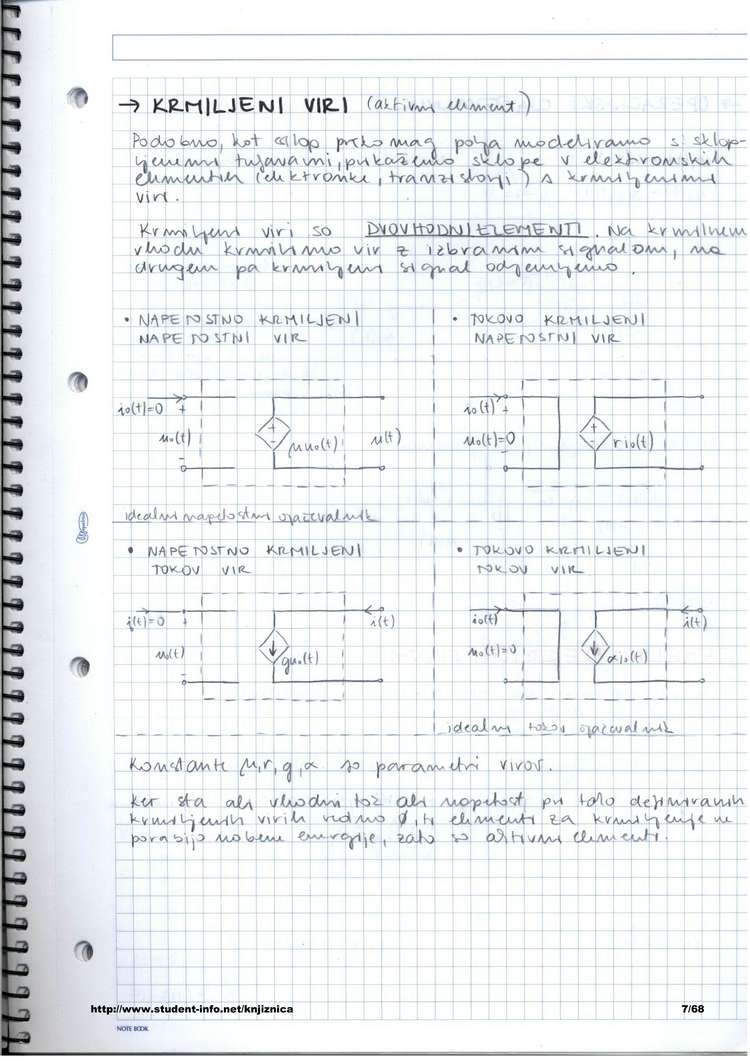 → KRMILJENI VIRI (aktivni element)
Podobno, kot sklop preko mag polja modeliramo s sklop-
ljenimi tuljavami, prikažemo sklope v elektronskih
elementih (elektronke, tranzistorji) s krmiljenimi
viri.
Krmiljeni viri so DVOVHODNI ELEMENTI. Na krmilnem
vhodu krmilimo vir z izbranim signalom, na
drugem pa krmiljeni signal odjemljemo.
• NAPETOSTNO KRMILJENI
NAPETOSTNI VIR
• TOKOVO KRMILJENI
NAPETOSTNI VIR
i₀(t)=0
+
u₀(t)
-
+
-
μu₀(t)
u(t)
i₀(t)
+
u₀(t)=0
-
+
-
ri₀(t)
idealni napetostni ojačevalnik
• NAPETOSTNO KRMILJENI
TOKOV VIR
• TOKOVO KRMILJENI
TOKOV VIR
i(t)=0
u₀(t)
gu₀(t)
i(t)
i₀(t)
u₀(t)=0
αi₀(t)
i(t)
idealni tokov ojačevalnik
Konstante μ, r, g, α so parametri virov.
Ker sta ali vhodni tok ali napetost pri tako definiranih
krmiljenih virih vedno 0, ti elementi za krmiljenje ne
porabijo nobene energije, zato so aktivni elementi.
http://www.student-info.net/knjiznica
7/68
NOTE BOOK